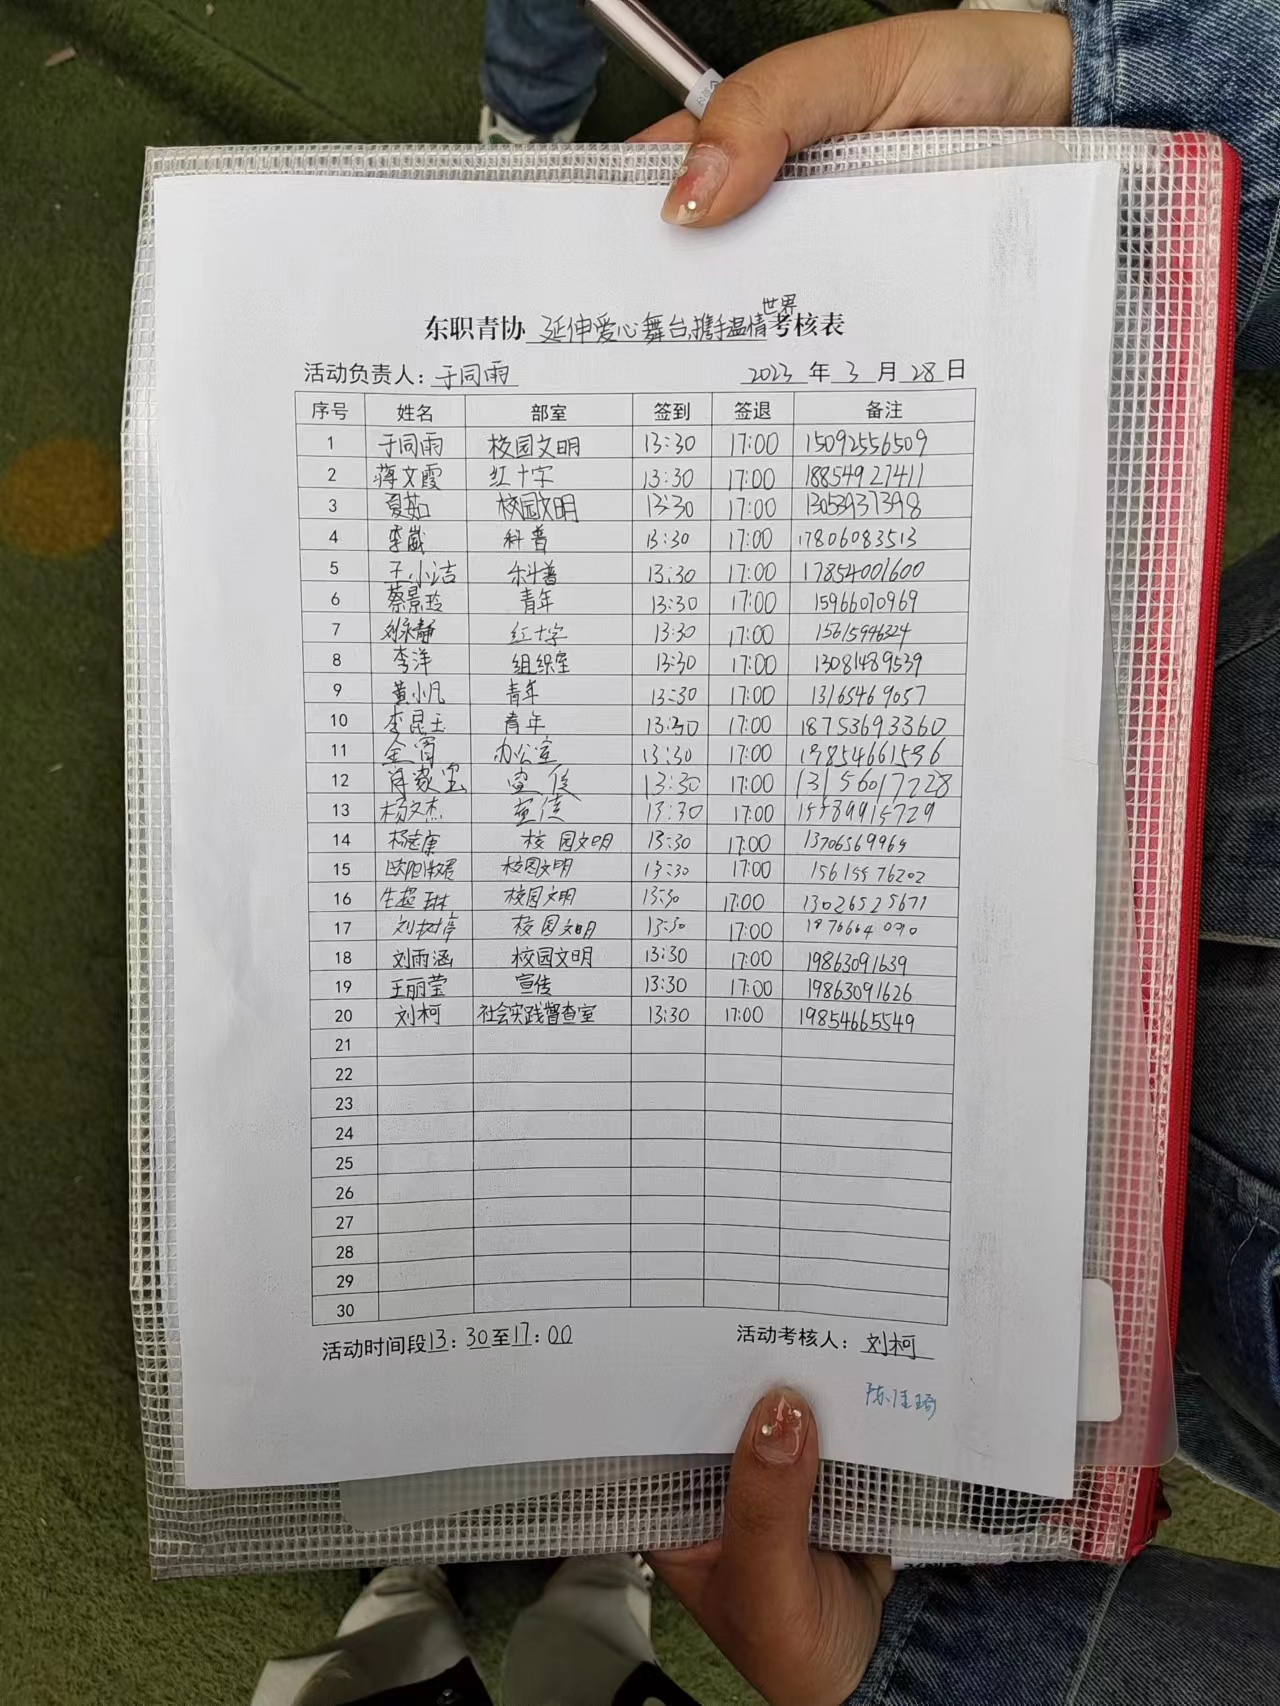 东职青协 延伸爱心舞台,携手温情世界考核表
活动负责人：于同雨 2023 年 3 月 28 日
序号 姓名 部室 签到 签退 备注
1 于同雨 校园文明 13:30 17:00 15092556509
2 蒋文霞 红十字 13:30 17:00 18854927411
3 夏茹 校园文明 13:30 17:00 13053937398
4 李崴 科普 13:30 17:00 17806083513
5 小洁 科普 13:30 17:00 17854001600
6 蔡景玲 青年 13:30 17:00 15966070969
7 刘永静 红十字 13:30 17:00 15615946324
8 李洋 组织室 13:30 17:00 13081489539
9 黄小凡 青年 13:30 17:00 13165469057
10 李昆玉 青年 13:30 17:00 18753693360
11 办公室 13:30 17:00 19854661596
12 宣传 13:30 17:00 13156017228
13 杨文杰 宣传 13:30 17:00 15589915729
14 杨志康 校园文明 13:30 17:00
15 校园文明 13:30 17:00 15615576202
16 校园文明 13:30 17:00 13026525671
17 刘树婷 校园文明 13:30 17:00
18 刘雨涵 校园文明 13:30 17:00 19863091639
19 王丽莹 宣传 13:30 17:00 19863091626
20 刘柯 社会实践督查室 13:30 17:00 19854665549
21
22
23
24
25
26
27
28
29
30
活动时间段13：30至17：00 活动考核人：刘柯
陈佳琦